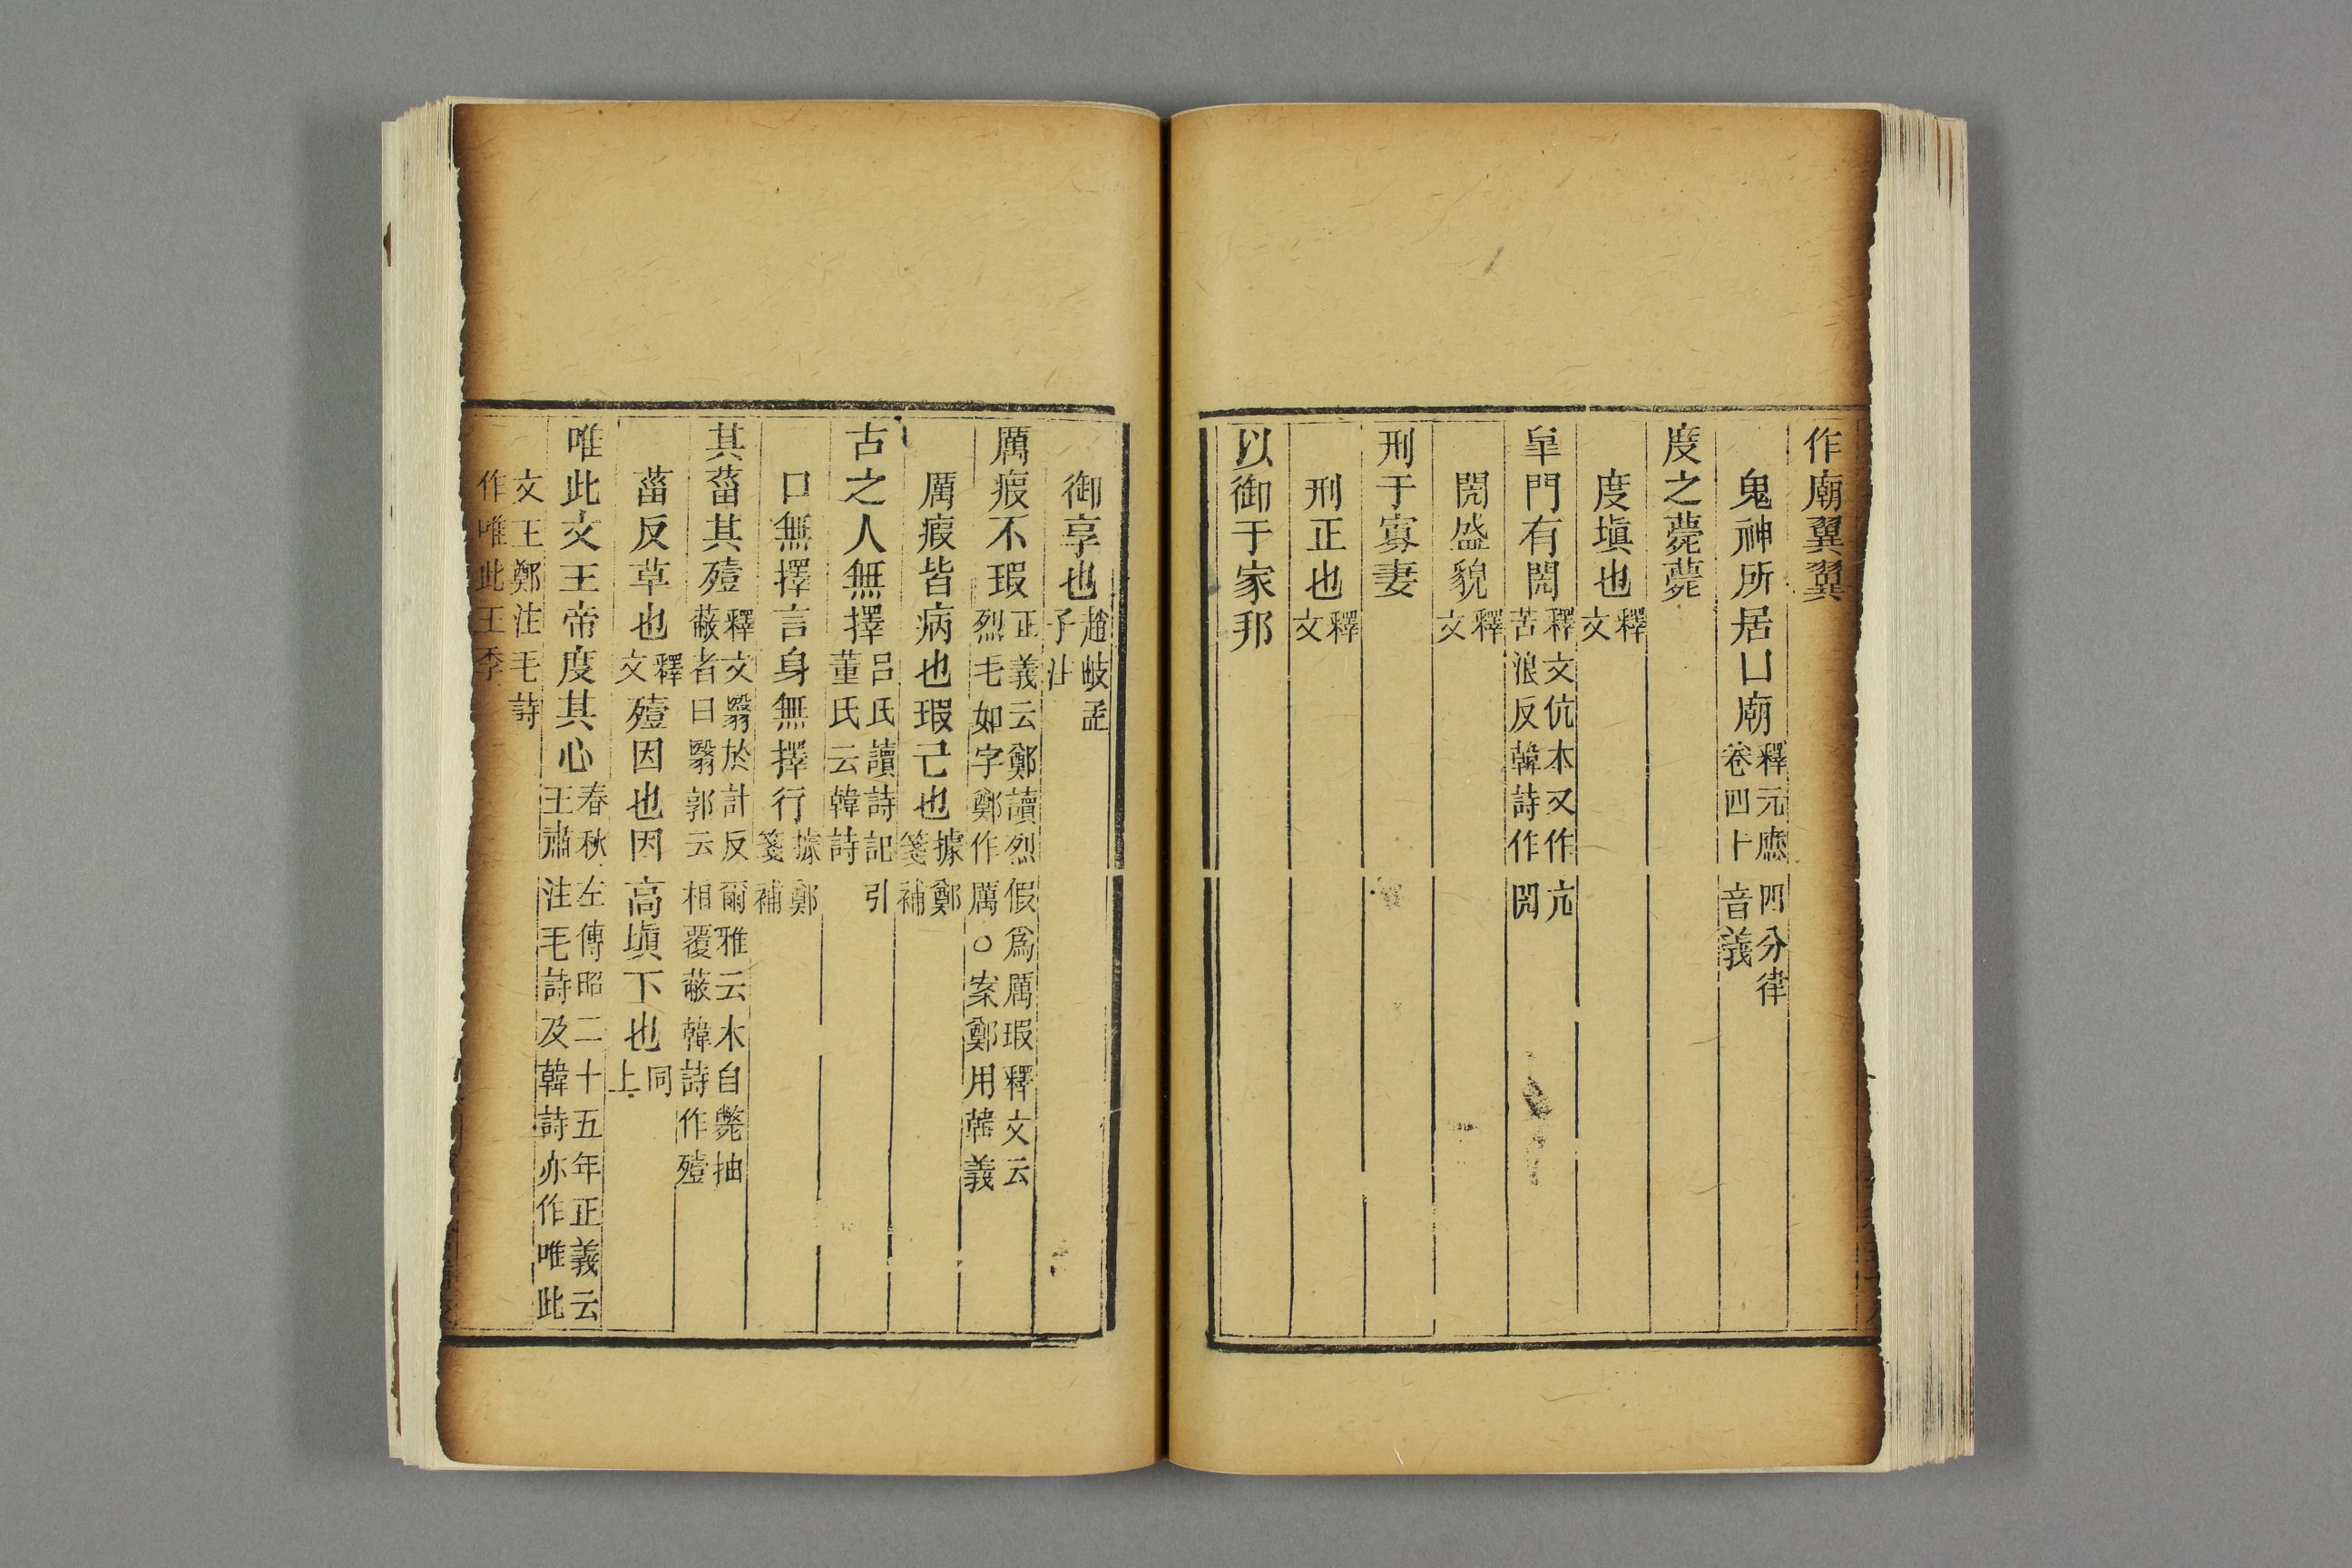 作廟翼翼
鬼神所居曰廟釋元應四分律卷四十音義
度之薨薨
度塡也釋文
皐門有閌釋文伉本又作亢苦浪反韓詩作閌
閌盛貌釋文
刑于寡妻
刑正也釋文
以御于家邦
御享也趙岐孟子注
厲瘕不瑕正義云鄭讀烈假爲厲瑕釋文云烈毛如字鄭作厲○案鄭用韓義
厲瘕皆病也瑕已也據鄭箋補
古之人無擇呂氏讀詩記引董氏云韓詩
口無擇言身無擇行據鄭箋補
其菑其殪釋文翳於計反爾雅云木自斃抽蔽者曰翳郭云相覆蔽韓詩作殪
菑反草也釋文殪因也因高塡下也同上
唯此文王帝度其心春秋左傳昭二十五年正義云王肅注毛詩及韓詩亦作唯此
文王鄭注毛詩作唯此王季